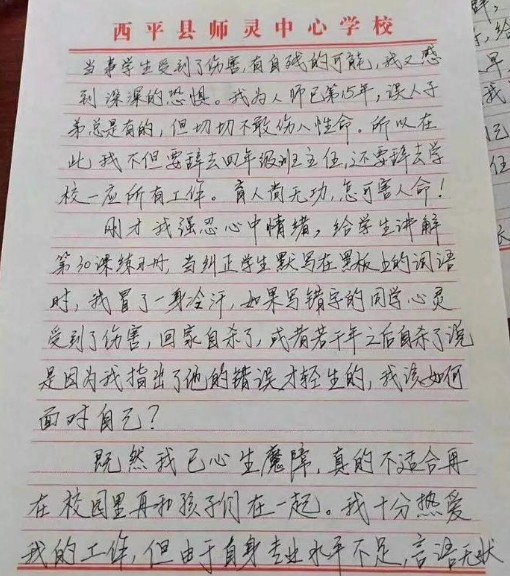 西平县师灵中心学校
当事学生受到了伤害,有自残的可能,我又感
到深深的恐惧。我为人师已第15年,误人子
弟总是有的,但切切不敢伤人性命。所以在
此我不但要辞去四年级班主任,还要辞去学
校一应所有工作。育人尚无功,怎可害人命!
刚才我强忍心中情绪,给学生讲解
第30课练习册,当纠正学生默写在黑板上的词语
时,我冒了一身冷汗,如果写错字的同学心灵
受到了伤害,回家自杀了,或者若干年之后自杀了说
是因为我指出了他的错误才轻生的,我该如何
面对自己?
既然我已心生魔障,真的不适合再
在校园里再和孩子们在一起。我十分热爱
我的工作,但由于自身专业水平不足,言语无状